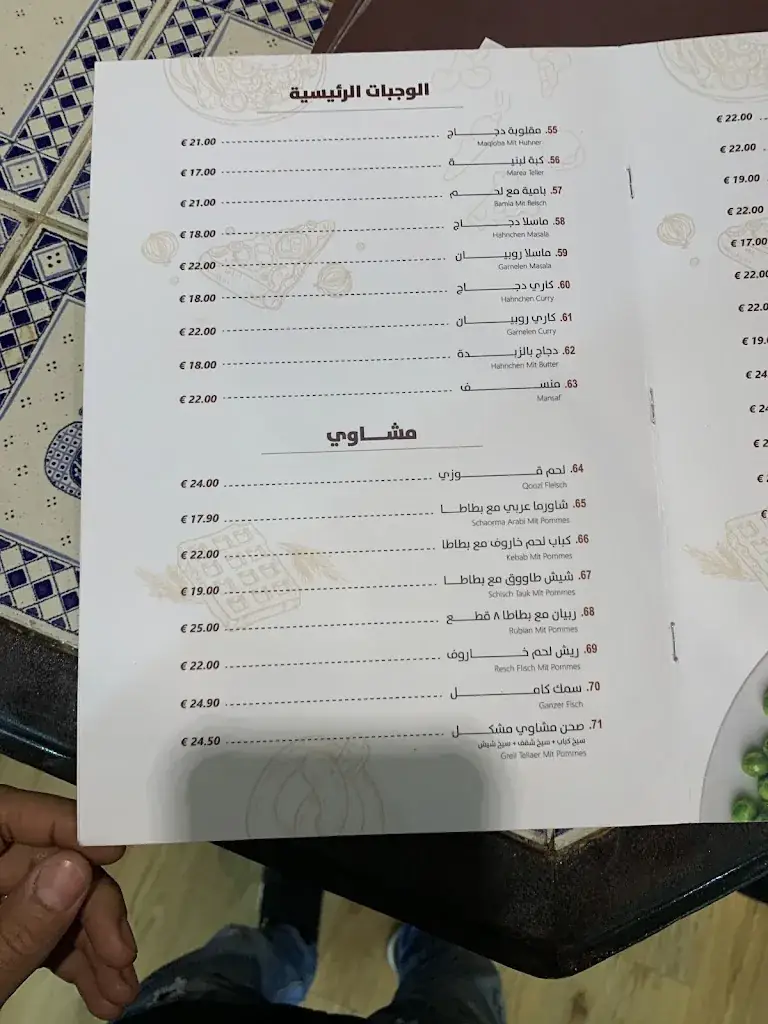 الوجبات الرئيسية
55. مقلوبة دجاج € 21.00
Maqloba Mit Huhner
56. كبة لبنية € 17.00
Marea Teller
57. بامية مع لحم € 21.00
Bamia Mit fleisch
58. ماسلا دجاج € 18.00
Hahnchen Masala
59. ماسلا روبيان € 22.00
Garnelen Masala
60. كاري دجاج € 18.00
Hahnchen Curry
61. كاري روبيان € 22.00
Garnelen Curry
62. دجاج بالزبدة € 18.00
Hahnchen Mit Butter
63. منسف € 22.00
Mansaf
مشاوي
64. لحم قوزي € 24.00
Qoozi Fleisch
65. شاورما عربي مع بطاطا € 17.90
Schaorma Arabi Mit Pommes
66. كباب لحم خاروف مع بطاطا € 22.00
Kebab Mit Pommes
67. شيش طاووق مع بطاطا € 19.00
Schisch Tauk Mit Pommes
68. ربيان مع بطاطا ٨ قطع € 25.00
Rubian Mit Pommes
69. ريش لحم خاروف € 22.00
Resch Flisch Mit Pommes
70. سمك كامل € 24.90
Ganzer Fisch
71. صحن مشاوي مشكل € 24.50
سيخ كباب + سيخ شقف + سيخ شيش
Greil Tellaer Mit Pommes
€ 22.00
€ 22.00
€ 19.00
€ 22.00
€ 17.00
€ 22.00
€ 22.0
€ 19.
€ 24
€ 24
€ 2
€
€